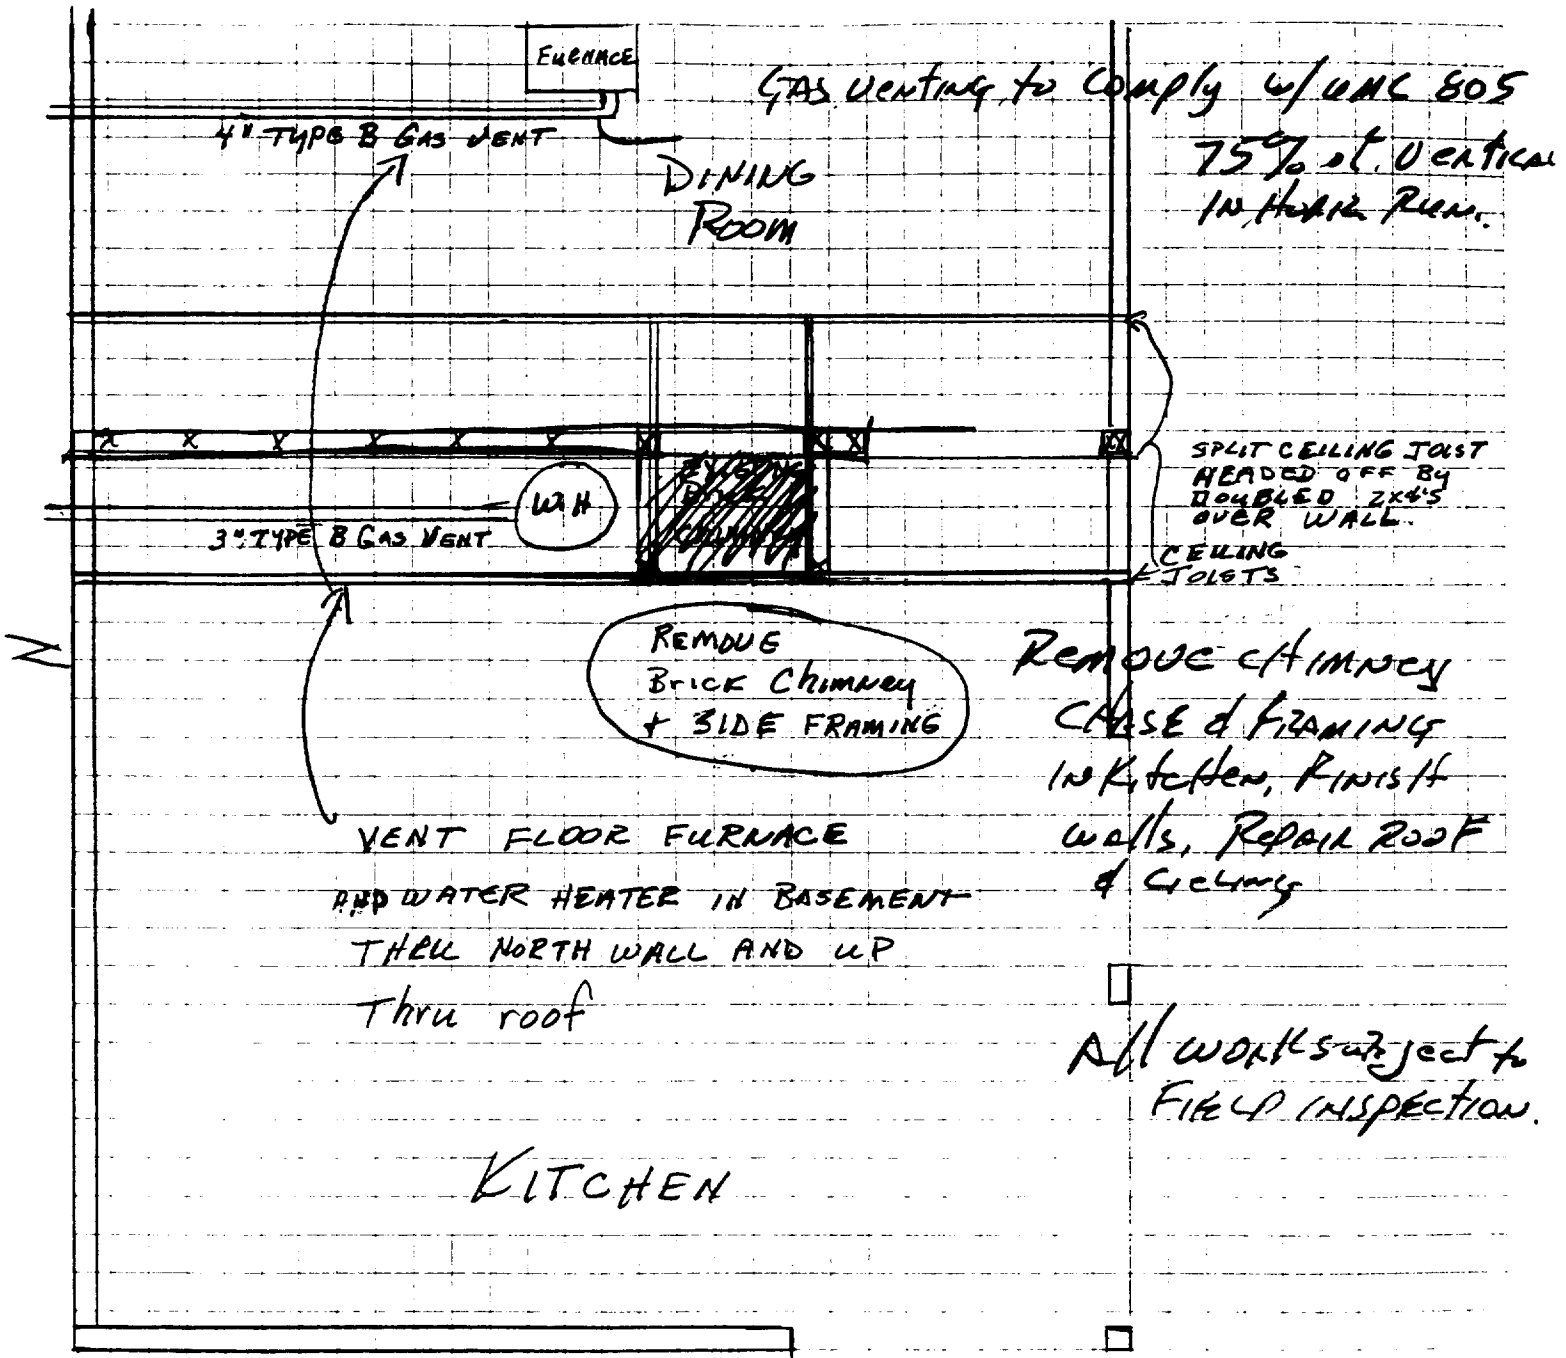 FURNACE
GAS venting to Comply w/ UMC 805
75% of Vertical
IN Horiz Run.
4" TYPE B GAS VENT
DINING
ROOM
EXISTING
SPLIT CEILING JOIST
HEADED OFF BY
DOUBLED 2X4'S
OVER WALL.
WH
3" TYPE B GAS VENT
CEILING
JOISTS
N
REMOVE
Brick Chimney
+ SIDE FRAMING
Remove CHIMNEY
CHASE & FRAMING
IN Kitchen, FINISH
walls, Repair ROOF
& Cieling
VENT FLOOR FURNACE
AND WATER HEATER IN BASEMENT
THRU NORTH WALL AND UP
Thru roof
All work subject to
FIELD INSPECTION.
KITCHEN